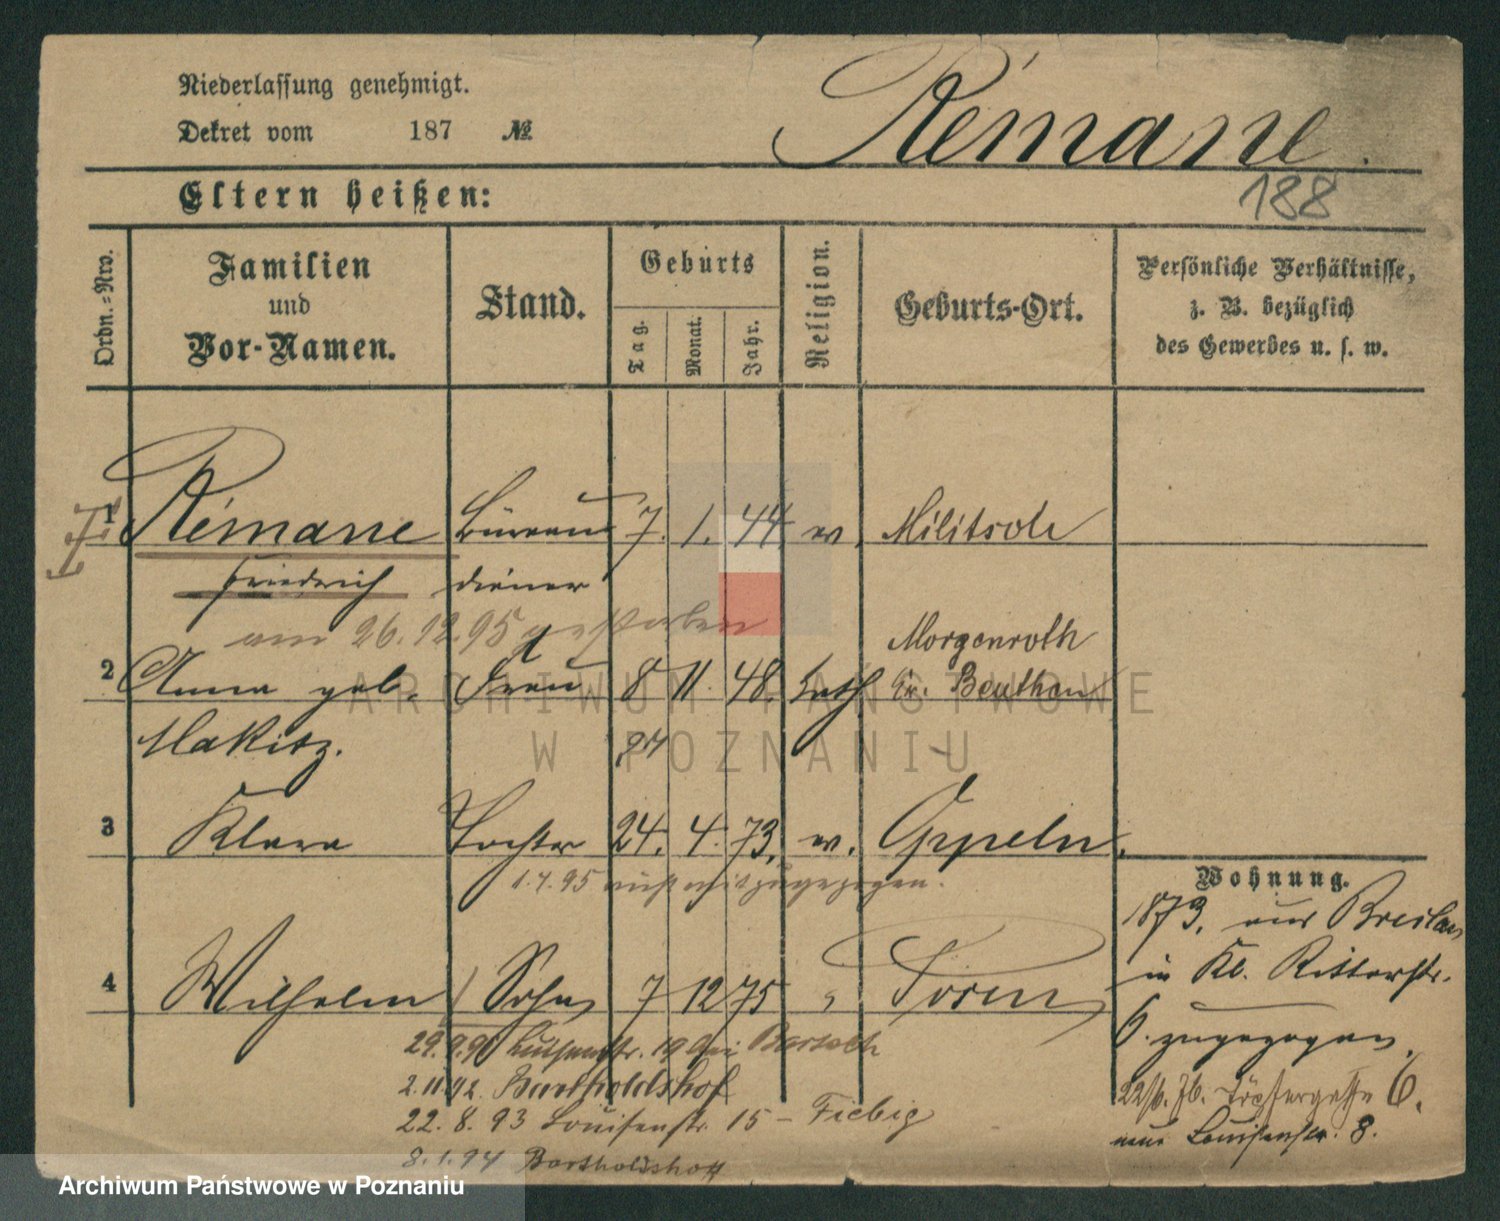 Niederlassung genehmigt.
Dekret vom 187 №
Rémane.
188
Eltern heißen:
Ordn.=Nrv.
Familien
und
Vor-Namen.
Stand.
Geburts
Tag.
Monat.
Jahr.
Religion.
Geburts-Ort.
Persönliche Verhältnisse,
z. B. bezüglich
des Gewerbes u. s. w.
1 Rémane Büreau 7. 1. 44 ev. Militsch
Friedrich diener
am 26.12.95 gestorben
Morgenroth
2 Anna geb. Frau 8 11. 48. kath Kr. Beuthen
Makisz. 24
3 Klara Tochter 24. 4. 73. ev. Oppeln.
1.4.95 nicht mitzugezogen.
Wohnung.
1873. aus Breslau
in Kl. Ritterstr.
6. zugezogen.
4 Wilhelm Sohn 7 12 75 Posen
29.9.90 Luisenstr. 19 bei Bartsch
2.11.92. Bartholdshof
22. 8. 93 Louisenstr. 15 - Fiebig
8.1.94 Bartholdshof
22/6. 76. Töpfergasse 6.
neue Louisenstr. 8.
ARCHIWUM PAŃSTWOWE
W POZNANIU
Archiwum Państwowe w Poznaniu